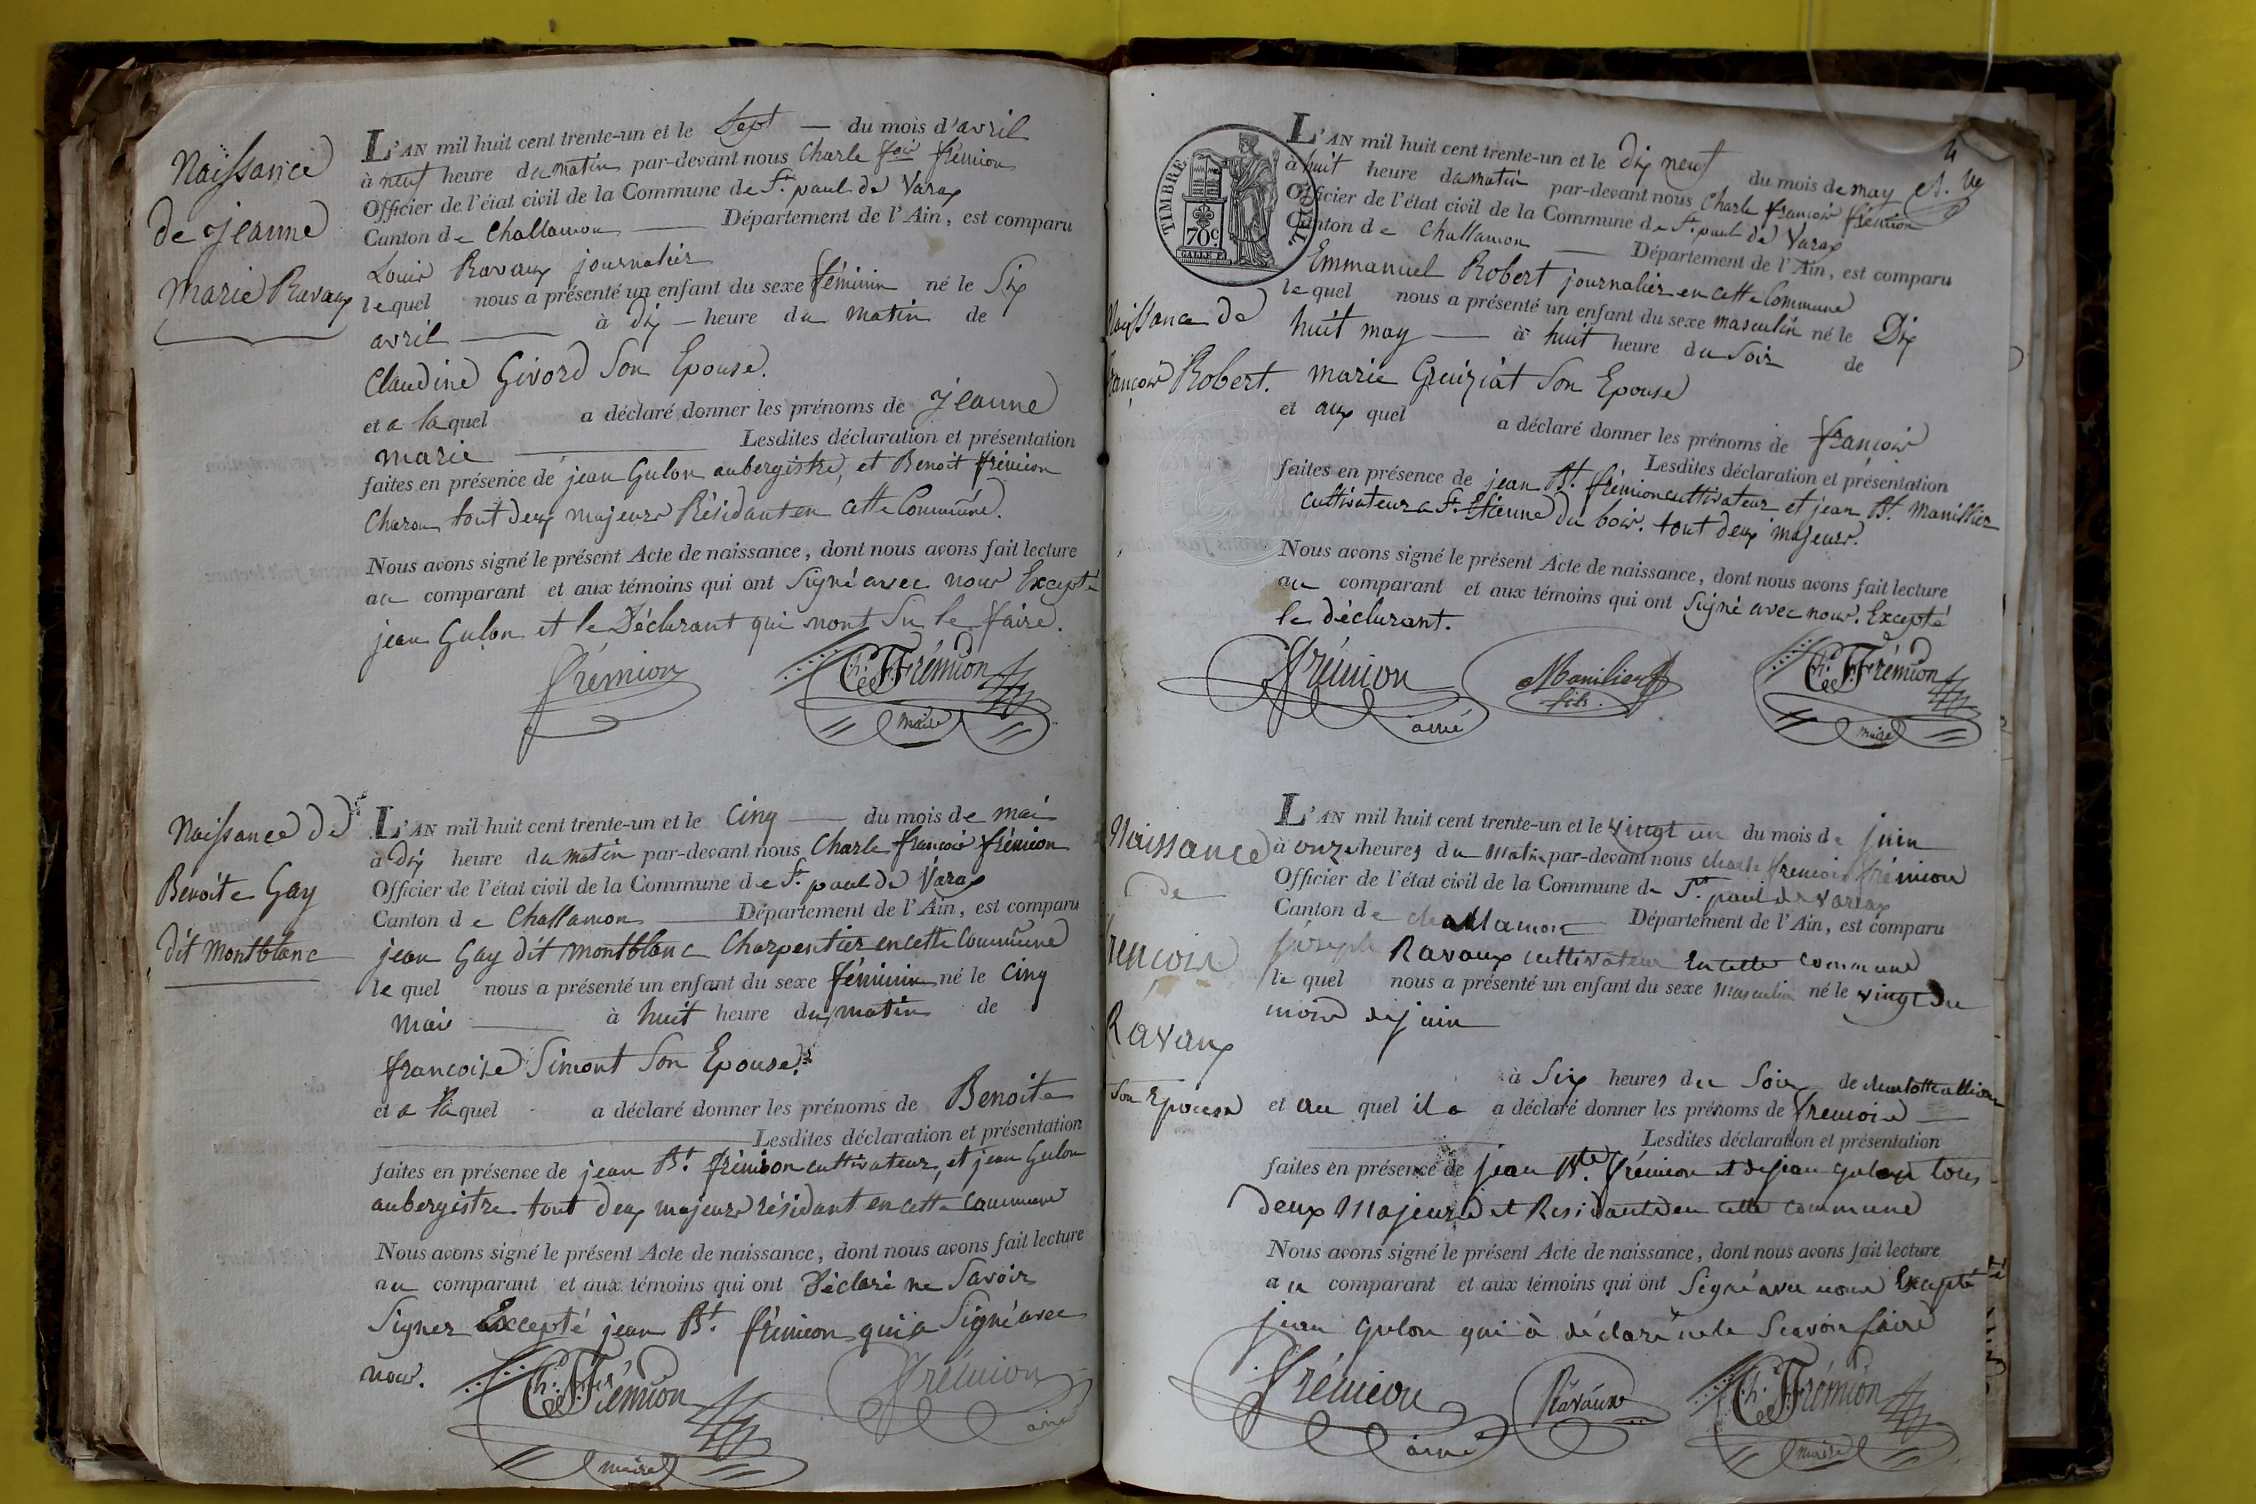 Naissance
de jeanne
marie Ravaux
L'AN mil huit cent trente-un et le Sept — du mois d'avril
à neuf heure du matin par-devant nous Charle fois frémion
Officier de l'état civil de la Commune de St. paul de Varax
Canton de Challamon — Département de l'Ain, est comparu
Louis Ravaux journalier
lequel nous a présenté un enfant du sexe féminin né le Six
avril — à dix — heure du matin de
Claudine Givord Son Epouse.
et a laquel a déclaré donner les prénoms de jeanne
marie — Lesdites déclaration et présentation
faites en présence de jean Gulon aubergistre, et Benoit frémion
Charon tout deux majeurs Résidant en cette Commune.
Nous avons signé le présent Acte de naissance, dont nous avons fait lecture
au comparant et aux témoins qui ont Signé avec nous Excepté
jean Gulon et le Déclarant qui nont Su le faire.
frémion Ch. F. Frémion
maire
Naissance de
Benoite Gay
dit Montblanc
L'AN mil huit cent trente-un et le cinq — du mois de mai
à dix heure du matin par-devant nous Charle françois frémion
Officier de l'état civil de la Commune de St. paul de Varax
Canton de Challamon — Département de l'Ain, est comparu
jean Gay dit montblanc Charpentier en cette Commune
lequel nous a présenté un enfant du sexe féminin né le cinq
mai — à huit heure du matin de
francoise Simont Son Epouse.
et a laquel a déclaré donner les prénoms de Benoite
— Lesdites déclaration et présentation
faites en présence de jean Bt. frémion cultivateur, et jean Gulon
aubergistre tout deux majeurs résidant en cette commune
Nous avons signé le présent Acte de naissance, dont nous avons fait lecture
au comparant et aux témoins qui ont Déclaré ne Savoir
Signer Excepté jean Bt. frémion qui a Signé avec
nous.
Ch. F. Frémion frémion
maire ainé
4
TIMBRE ROYAL
70c.
L'AN mil huit cent trente-un et le dix neuf du mois de may
à huit heure du matin par-devant nous Charle françois frémion
Officier de l'état civil de la Commune de St. paul de Varax
Canton de Challamon — Département de l'Ain, est comparu
Emmanuel Robert journalier en cette Commune
lequel nous a présenté un enfant du sexe masculin né le Dix
Naissance de
françois Robert.
huit may — à huit heure du Soir de
marie Greuziat Son Epouse
et aux quel a déclaré donner les prénoms de françois
Lesdites déclaration et présentation
faites en présence de jean Bt. frémion cultivateur et jean Bt. Manillier
cultivateur a St. Etienne du bois. tout deux majeurs.
Nous avons signé le présent Acte de naissance, dont nous avons fait lecture
au comparant et aux témoins qui ont Signé avec nous. Excepté
le déclarant.
frémion Manilier Ch. F. Frémion
ainé fils. maire
Naissance
de
frencois
Ravaux
L'AN mil huit cent trente-un et le vingt un du mois de juin
à onze heures du Matin par-devant nous charle frencois frémion
Officier de l'état civil de la Commune de St. paul de varax
Canton de challamont — Département de l'Ain, est comparu
joseph Ravaux cultivateur en cette commune
lequel nous a présenté un enfant du sexe Masculin né le vingt du
mois de juin
à Six heures du Soir de charlotte
Son Epouse
et au quel il a a déclaré donner les prénoms de frencois —
Lesdites déclaration et présentation
faites en présence de jean Bte. frémion et de jean gulon tous
deux Majeurs et Residants en cette commune
Nous avons signé le présent Acte de naissance, dont nous avons fait lecture
au comparant et aux témoins qui ont Signé avec nous Excepté
jean gulon qui à déclaré ne le Scavoir faire
frémion Ravaux Ch. F. Frémion
ainé maire